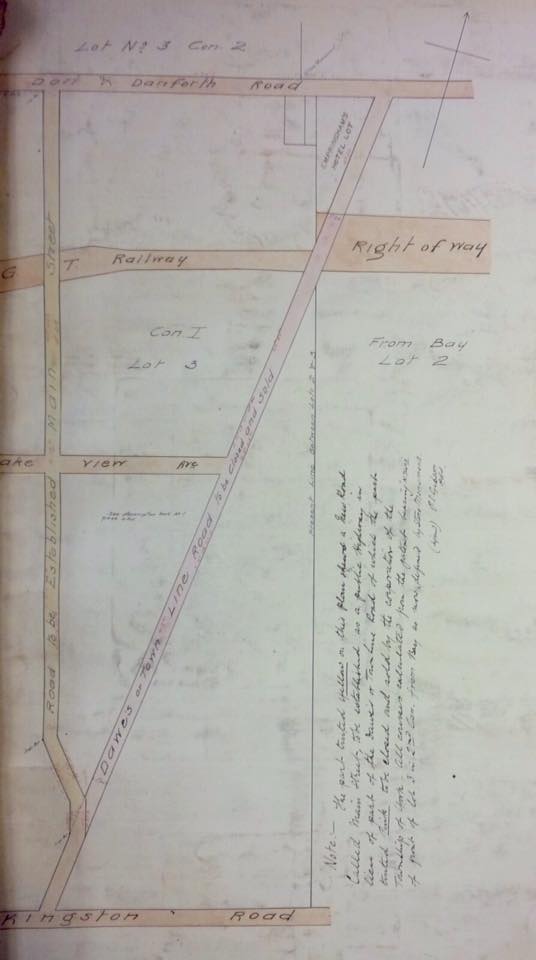 Lot No 3 Con. 2
Don & Danforth Road
CHARINGHAM'S
HOTEL LOT
Right of Way
G T. Railway
Main Street
Con. I
Lot 3
From Bay
Lot 2
Lake View Ave
Road to be Established
Dawes or Town Line Road to be Closed and Sold
Present Line Between Lots 2 & 3
See description Book No 1
Note:— The part tinted yellow on this plan shews a New Road
called Main Street, to be established as a public highway in
lieu of part of the Dawes or Townline Road of which the part
tinted Pink to be closed and sold by the corporation of the
Township of York. All courses calculated from the patent bearing
of front of Lot 3 in 2nd Con. from Bay as now defined by Stone Monument.
(Sgd) P.S. Gibson
Kingston Road